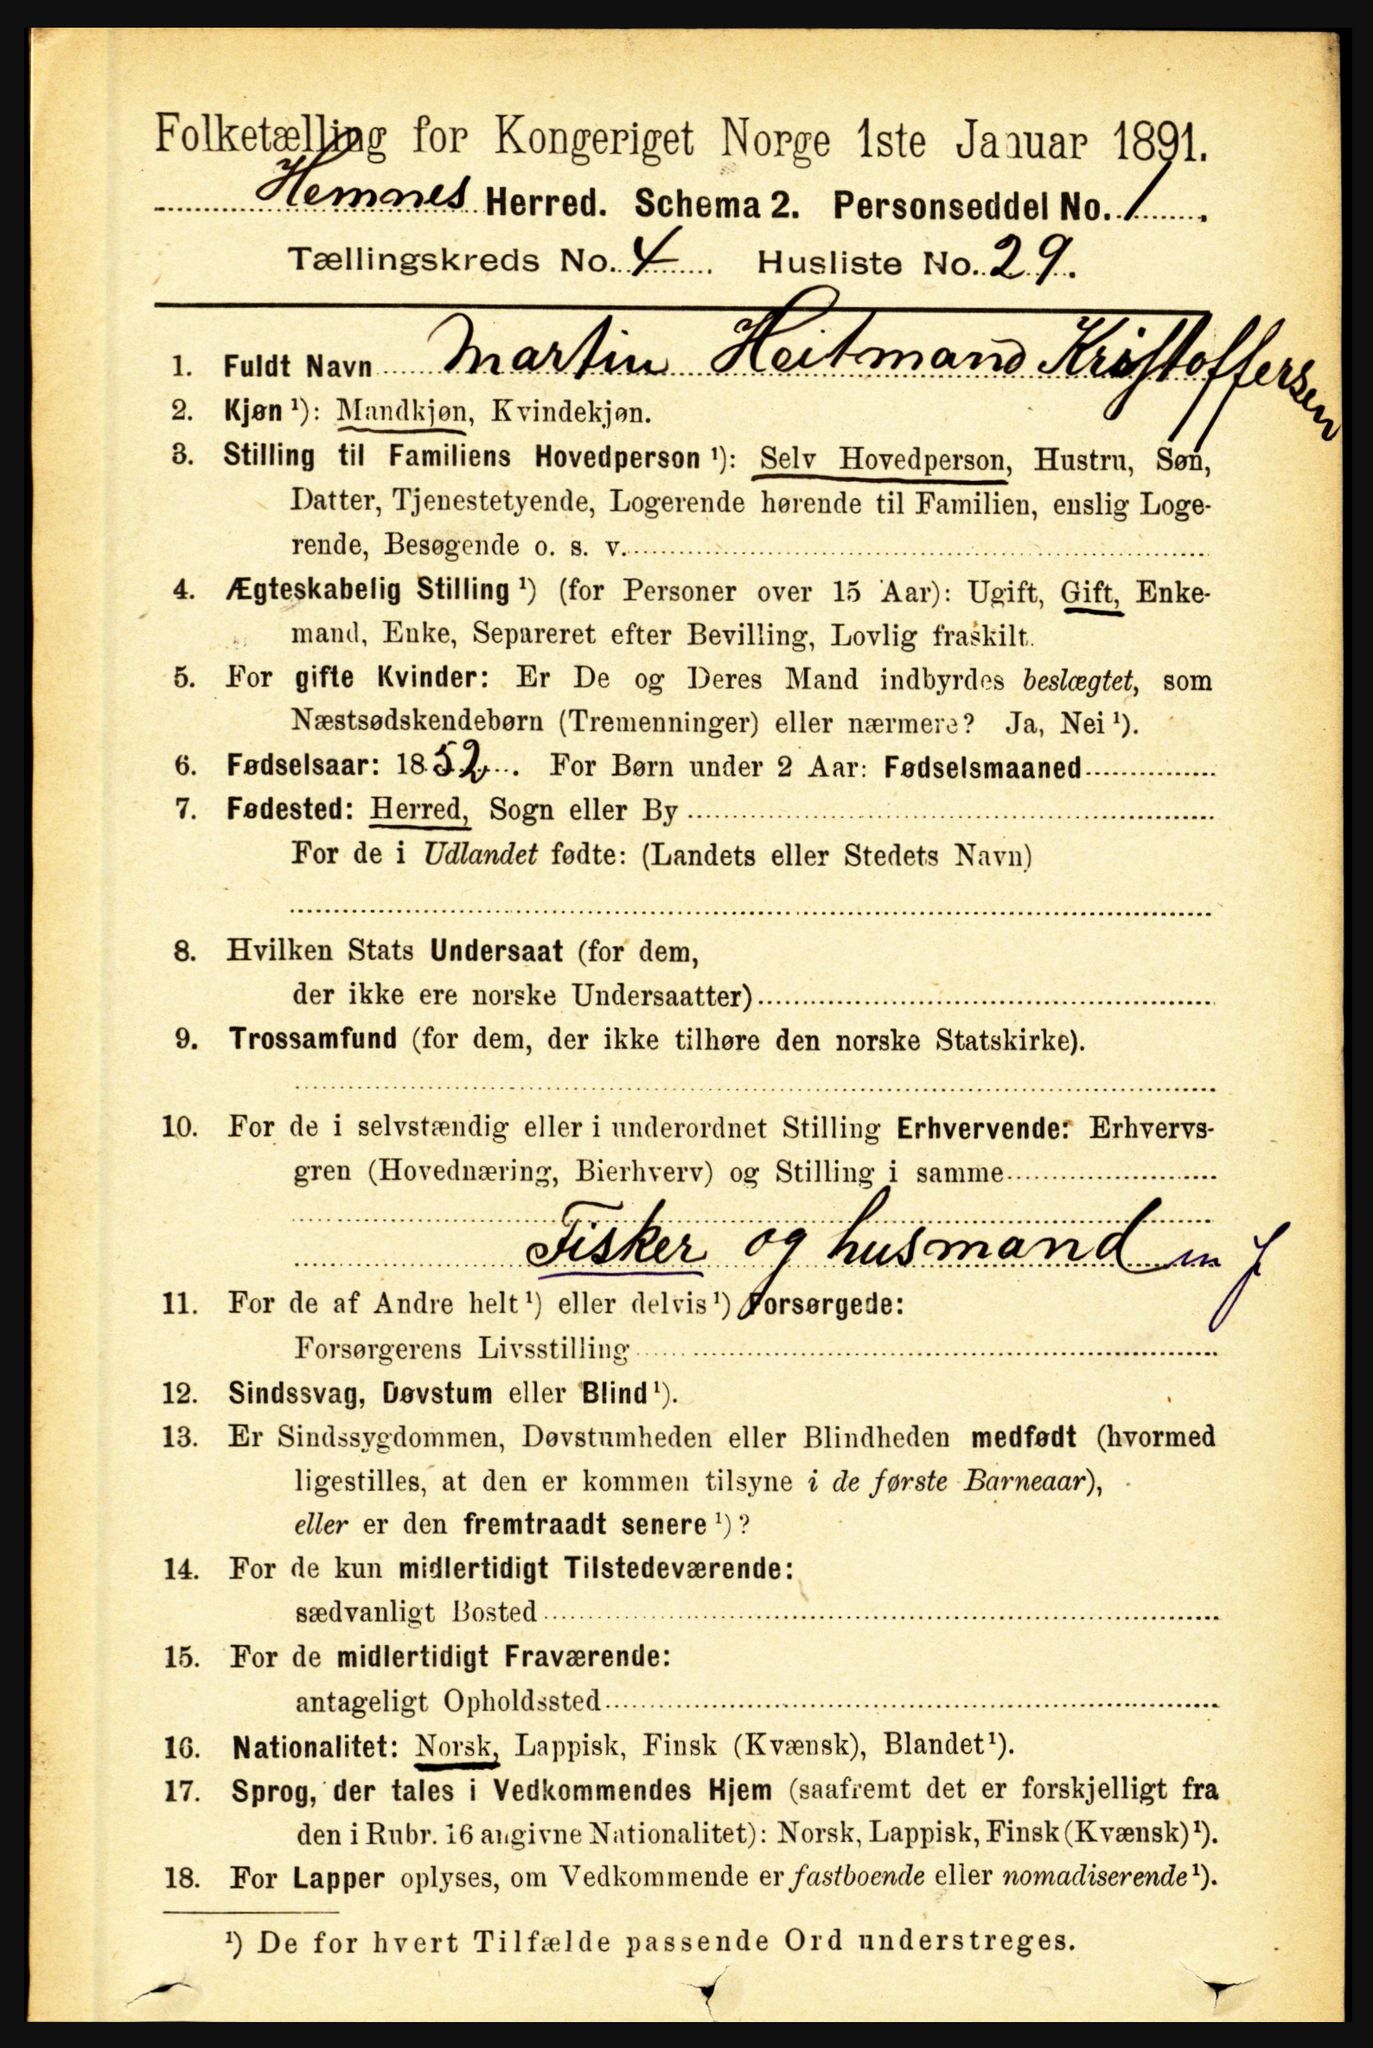 Folketælling for Kongeriget Norge 1ste Januar 1891.
Hemnes Herred. Schema 2. Personseddel No. 1
Tællingskreds No. 4 Husliste No. 29.
1. Fuldt Navn Martin Heitmand Kristoffersen
2. Kjøn ¹): Mandkjøn, Kvindekjøn.
3. Stilling til Familiens Hovedperson ¹): Selv Hovedperson, Hustru, Søn,
Datter, Tjenestetyende, Logerende hørende til Familien, enslig Loge-
rende, Besøgende o. s. v.
4. Ægteskabelig Stilling ¹) (for Personer over 15 Aar): Ugift, Gift, Enke-
mand, Enke, Separeret efter Bevilling, Lovlig fraskilt.
5. For gifte Kvinder: Er De og Deres Mand indbyrdes beslægtet, som
Næstsødskendebørn (Tremenninger) eller nærmere? Ja, Nei ¹).
6. Fødselsaar: 1852. For Børn under 2 Aar: Fødselsmaaned
7. Fødested: Herred, Sogn eller By
For de i Udlandet fødte: (Landets eller Stedets Navn)
8. Hvilken Stats Undersaat (for dem,
der ikke ere norske Undersaatter)
9. Trossamfund (for dem, der ikke tilhøre den norske Statskirke).
10. For de i selvstændig eller i underordnet Stilling Erhvervende: Erhvervs-
gren (Hovednæring, Bierhverv) og Stilling i samme
Fisker og husmand m J
11. For de af Andre helt ¹) eller delvis ¹) Forsørgede:
Forsørgerens Livsstilling
12. Sindssvag, Døvstum eller Blind ¹).
13. Er Sindssygdommen, Døvstumheden eller Blindheden medfødt (hvormed
ligestilles, at den er kommen tilsyne i de første Barneaar),
eller er den fremtraadt senere ¹)?
14. For de kun midlertidigt Tilstedeværende:
sædvanligt Bosted
15. For de midlertidigt Fraværende:
antageligt Opholdssted
16. Nationalitet: Norsk, Lappisk, Finsk (Kvænsk), Blandet ¹).
17. Sprog, der tales i Vedkommendes Hjem (saafremt det er forskjelligt fra
den i Rubr. 16 angivne Nationalitet): Norsk, Lappisk, Finsk (Kvænsk) ¹).
18. For Lapper oplyses, om Vedkommende er fastboende eller nomadiserende ¹).
¹) De for hvert Tilfælde passende Ord understreges.